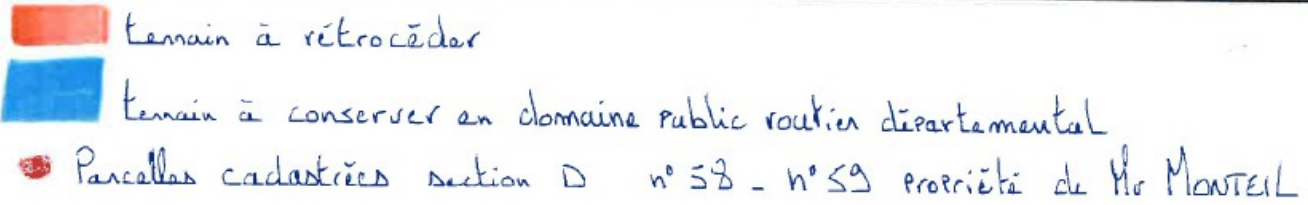 terrain à rétrocéder
terrain à conserver en domaine public routier départemental
Parcelles cadastrées section D n° 58 - n° 59 propriété de Mr MONTEIL